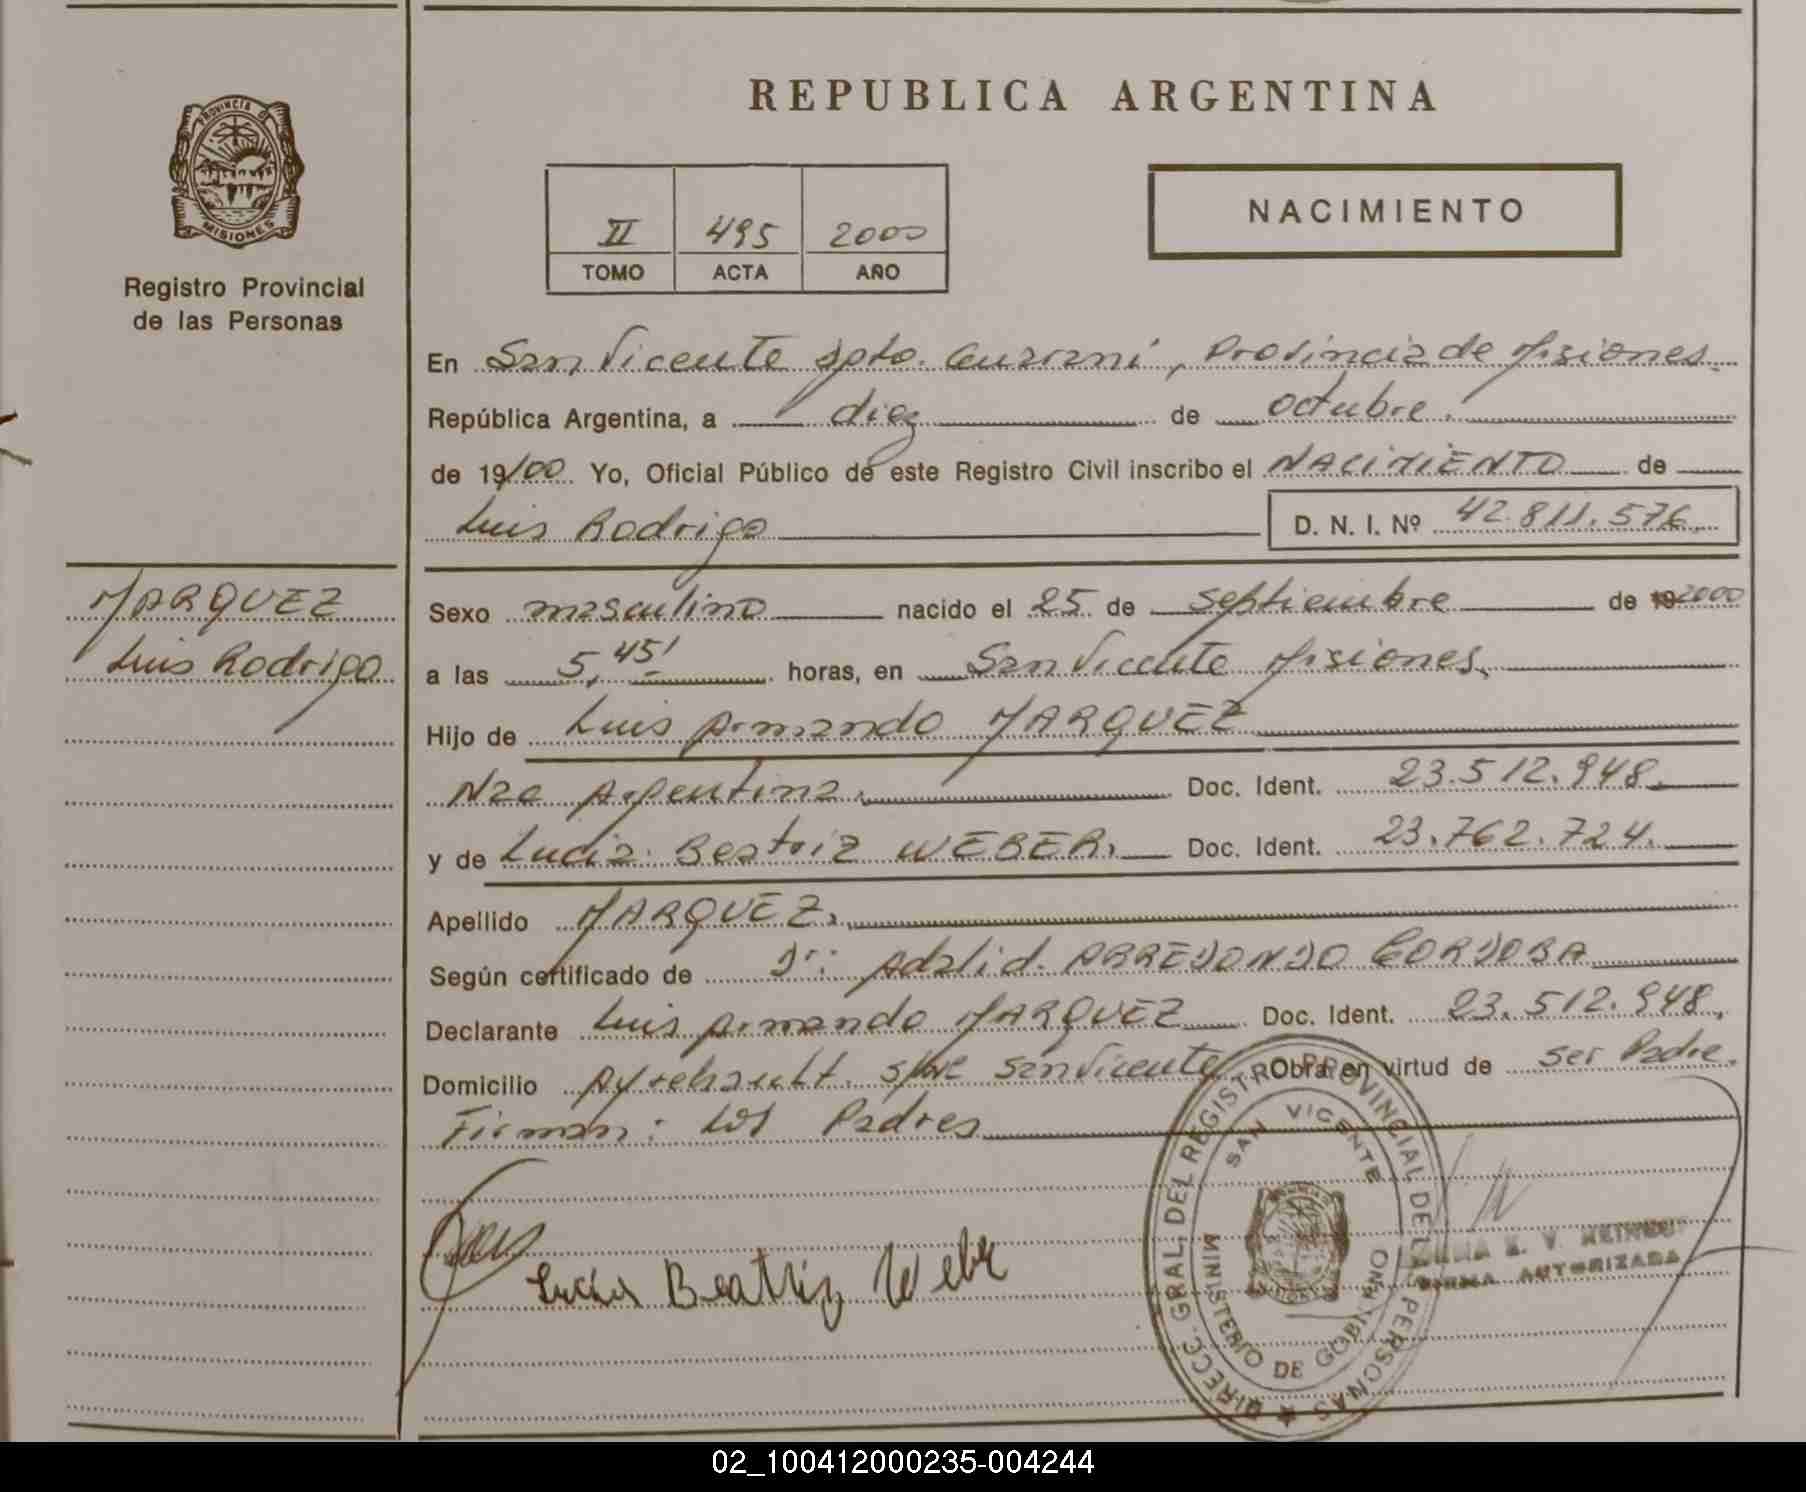 REPUBLICA ARGENTINA
PROVINCIA DE
MISIONES
Registro Provincial
de las Personas
II 495 2000
TOMO ACTA AÑO
NACIMIENTO
En San Vicente Dpto. Guaraní, Provincia de Misiones
República Argentina, a diez de octubre.
de 19/00 Yo, Oficial Público de este Registro Civil inscribo el NACIMIENTO de
Luis Rodrigo D. N. I. Nº 42.811.576
MARQUEZ
Luis Rodrigo
Sexo masculino nacido el 25 de septiembre de 19 2000
a las 5,45' horas, en San Vicente Misiones,
Hijo de Luis Armando MARQUEZ
Nac Argentina. Doc. Ident. 23.512.948.
y de Lucia Beatriz WEBER, Doc. Ident. 23.762.724.
Apellido MARQUEZ,
Según certificado de Dr: Adalid ARREDONDO CORDOBA
Declarante Luis Armando MARQUEZ Doc. Ident. 23.512.948,
Domicilio San Vicente Obra en virtud de ser Padre.
Firman: los Padres
Lucia Beatriz Weber
DIRECC. GRAL. DEL REGISTRO PROVINCIAL DE PERSONAS
SAN VICENTE
MINISTERIO DE GOBIERNO
FIRMA AUTORIZADA
02_100412000235-004244